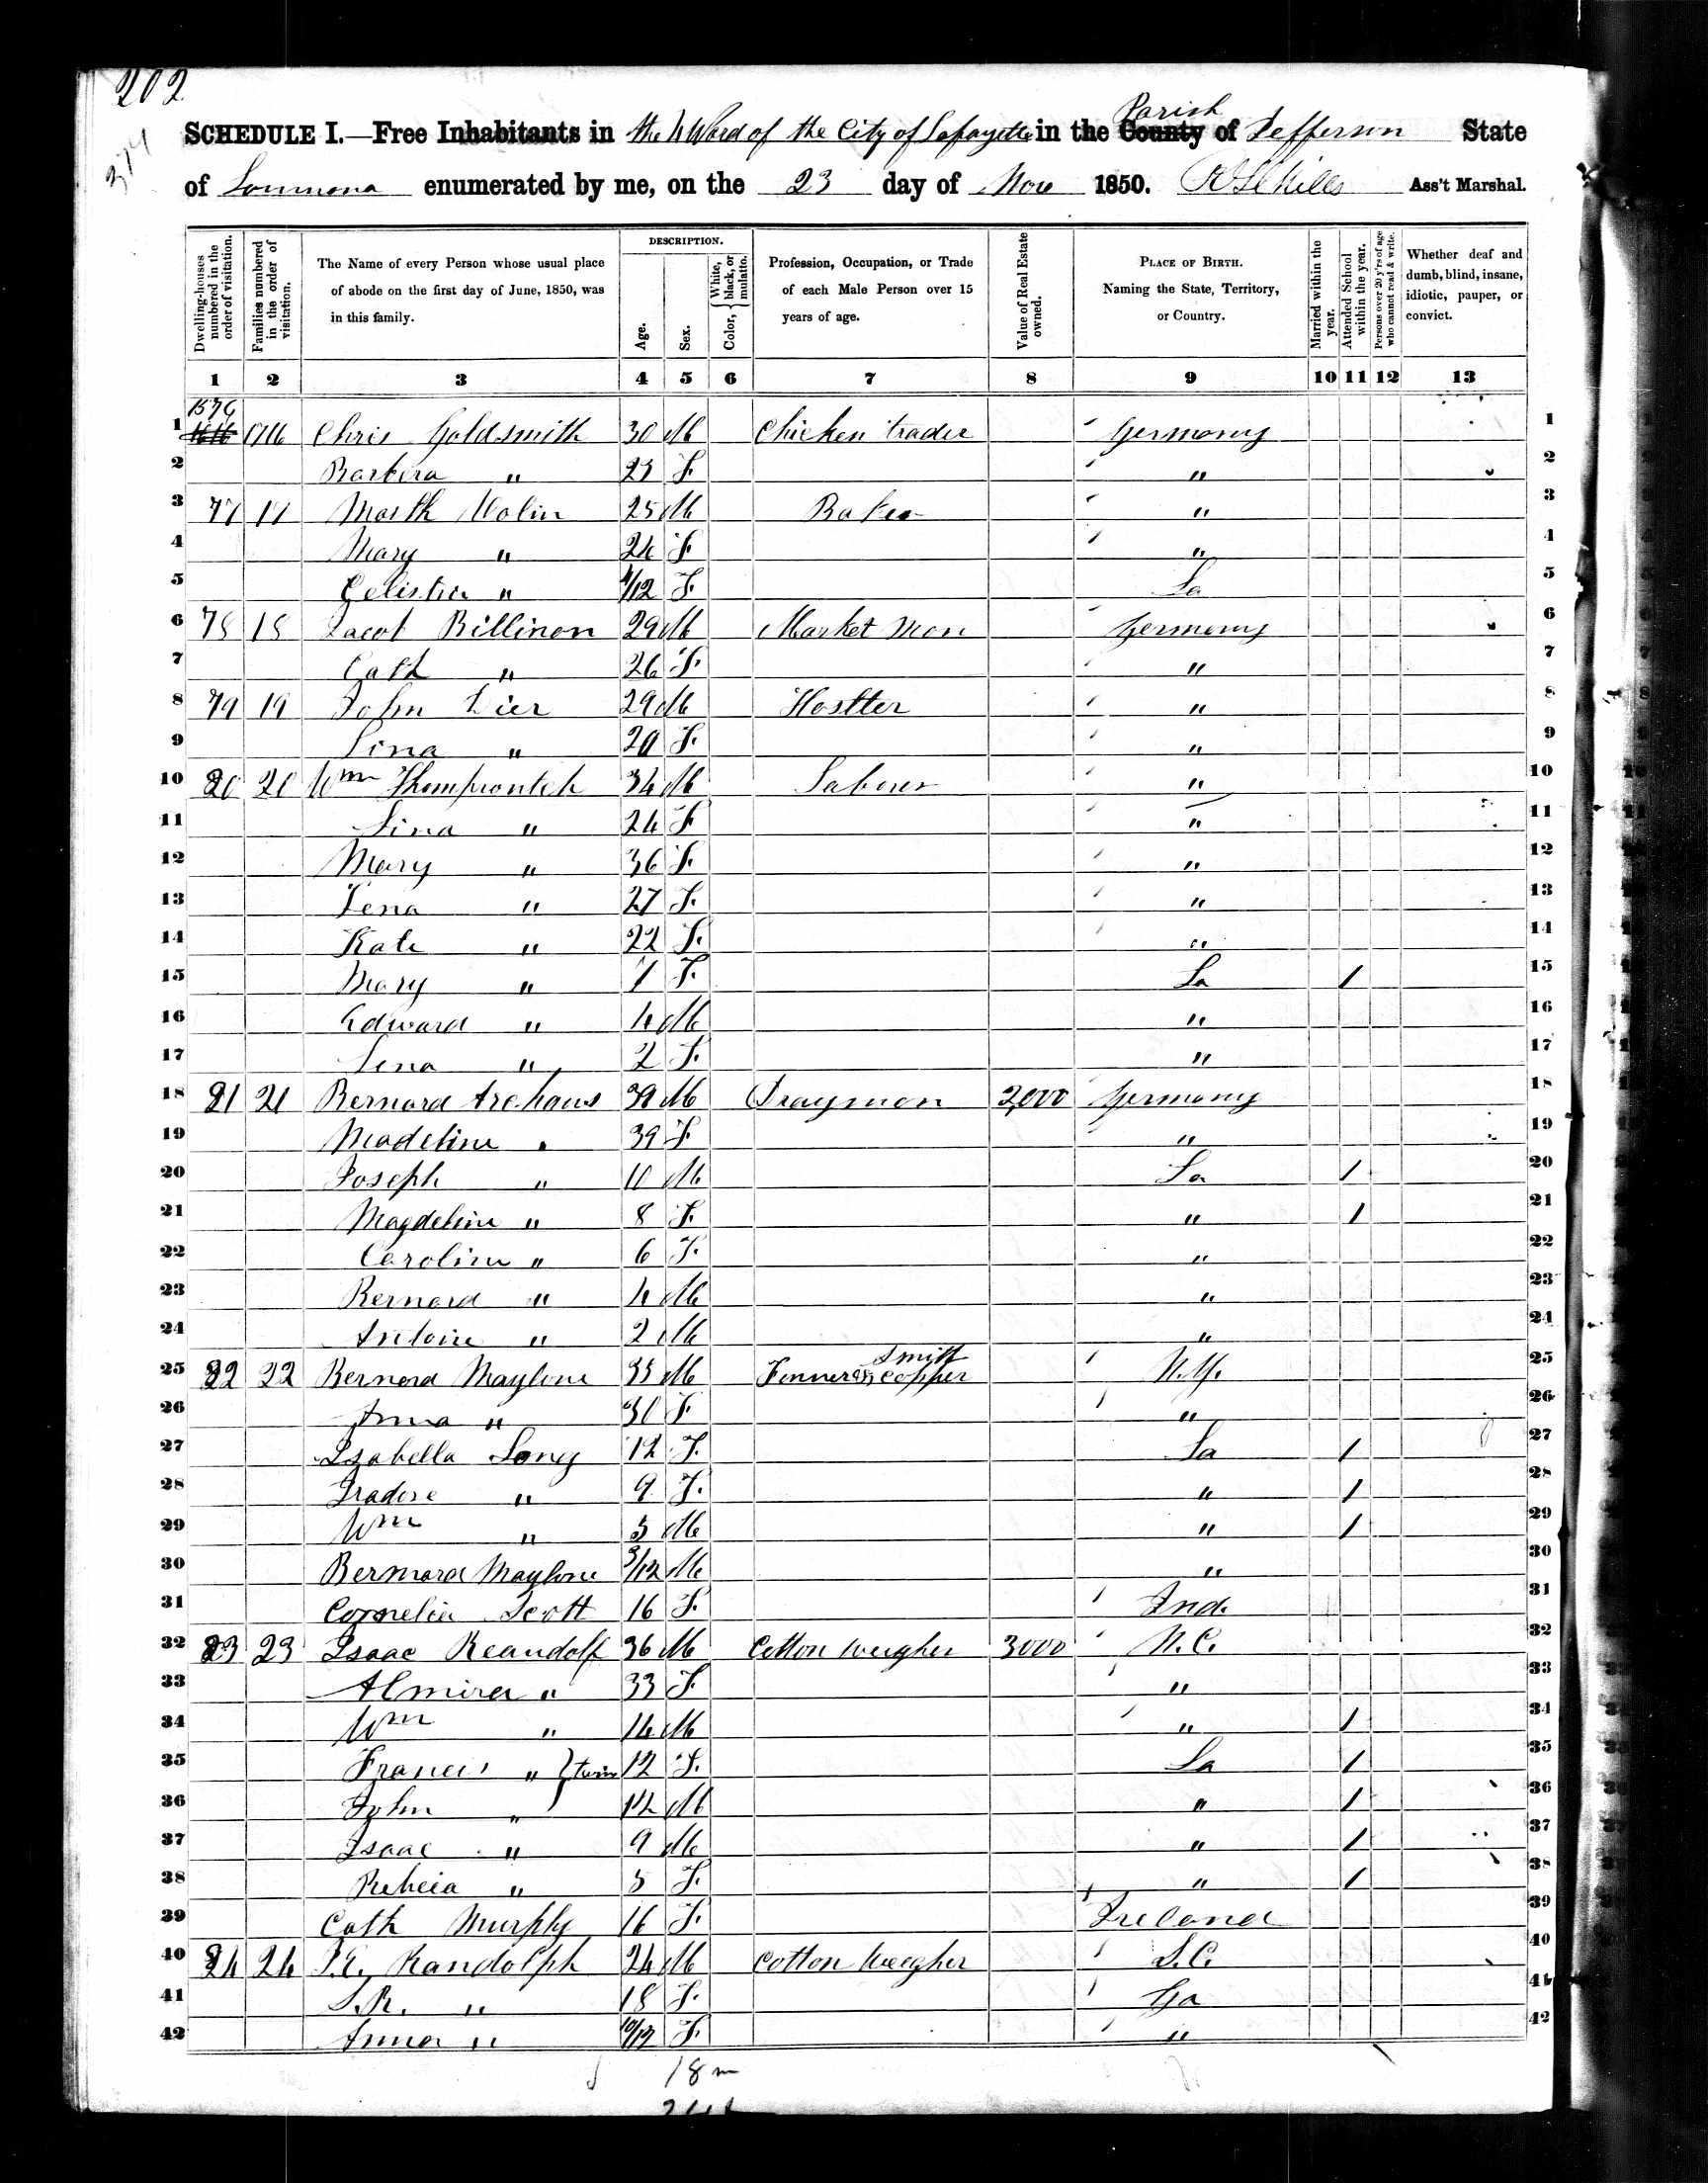 202
374
SCHEDULE I.—Free Inhabitants in the 4 Ward of the City of Lafayette in the County Parish of Jefferson State
of Louisiana enumerated by me, on the 23 day of Nov 1850. Ass't Marshal.
Dwelling-houses numbered in the order of visitation.
Families numbered in the order of visitation.
The Name of every Person whose usual place of abode on the first day of June, 1850, was in this family.
DESCRIPTION.
Age.
Sex.
Color, { White, black, or mulatto.
Profession, Occupation, or Trade of each Male Person over 15 years of age.
Value of Real Estate owned.
PLACE OF BIRTH. Naming the State, Territory, or Country.
Married within the year.
Attended School within the year.
Persons over 20 y'rs of age who cannot read & write.
Whether deaf and dumb, blind, insane, idiotic, pauper, or convict.
1 2 3 4 5 6 7 8 9 10 11 12 13
1 1576 1716 Chris Goldsmith 30 M Chicken trader Germany 1
2 Barbera " 23 F " 2
3 77 17 25 M Baker " 3
4 Mary " 24 F " 4
5 Celistia " 4/12 F La 5
6 78 18 Jacob Billinon 29 M Market Man Germany 6
7 Cath " 26 F " 7
8 79 19 John Dier 29 M Hostler " 8
9 Lina " 29 F " 9
10 80 20 Wm 34 M Laborer " 10
11 Lina " 24 F " 11
12 Mary " 36 F " 12
13 Lena " 27 F " 13
14 Kate " 22 F " 14
15 Mary " 7 F La / 15
16 Edward " 4 M " 16
17 Lena " 2 F " 17
18 81 21 Bernard Arehaus 39 M Drayman 2,000 Germany 18
19 Madeline " 39 F " 19
20 Joseph " 10 M La / 20
21 Magdeline " 8 F " / 21
22 Caroline " 6 F " 22
23 Bernard " 4 M " 23
24 Antoine " 2 M " 24
25 82 22 Bernard Maylone 35 M Tinner & Copper Smith N.Y. 25
26 Anna " 30 F " 26
27 Isabella Long 12 F La / 27
28 Isadore " 9 F " / 28
29 Wm " 5 M " / 29
30 Bernard Maylone 3/12 M " 30
31 Cornelia Scott 16 F Ind. 31
32 83 23 Isaac Reandolf 36 M Cotton weigher 3000 N.C. 32
33 Almira " 33 F " 33
34 Wm " 14 M " / 34
35 Francis " } twins 12 F La / 35
36 John " 12 M " / 36
37 Isaac " 9 M " / 37
38 Rebeca " 5 F " / 38
39 Cath Murphy 16 F Ireland 39
40 84 24 Randolph 24 M Cotton Weigher S.C. 40
41 S.R. " 18 F Ga 41
42 Anna " 10/12 F " 42
18 m